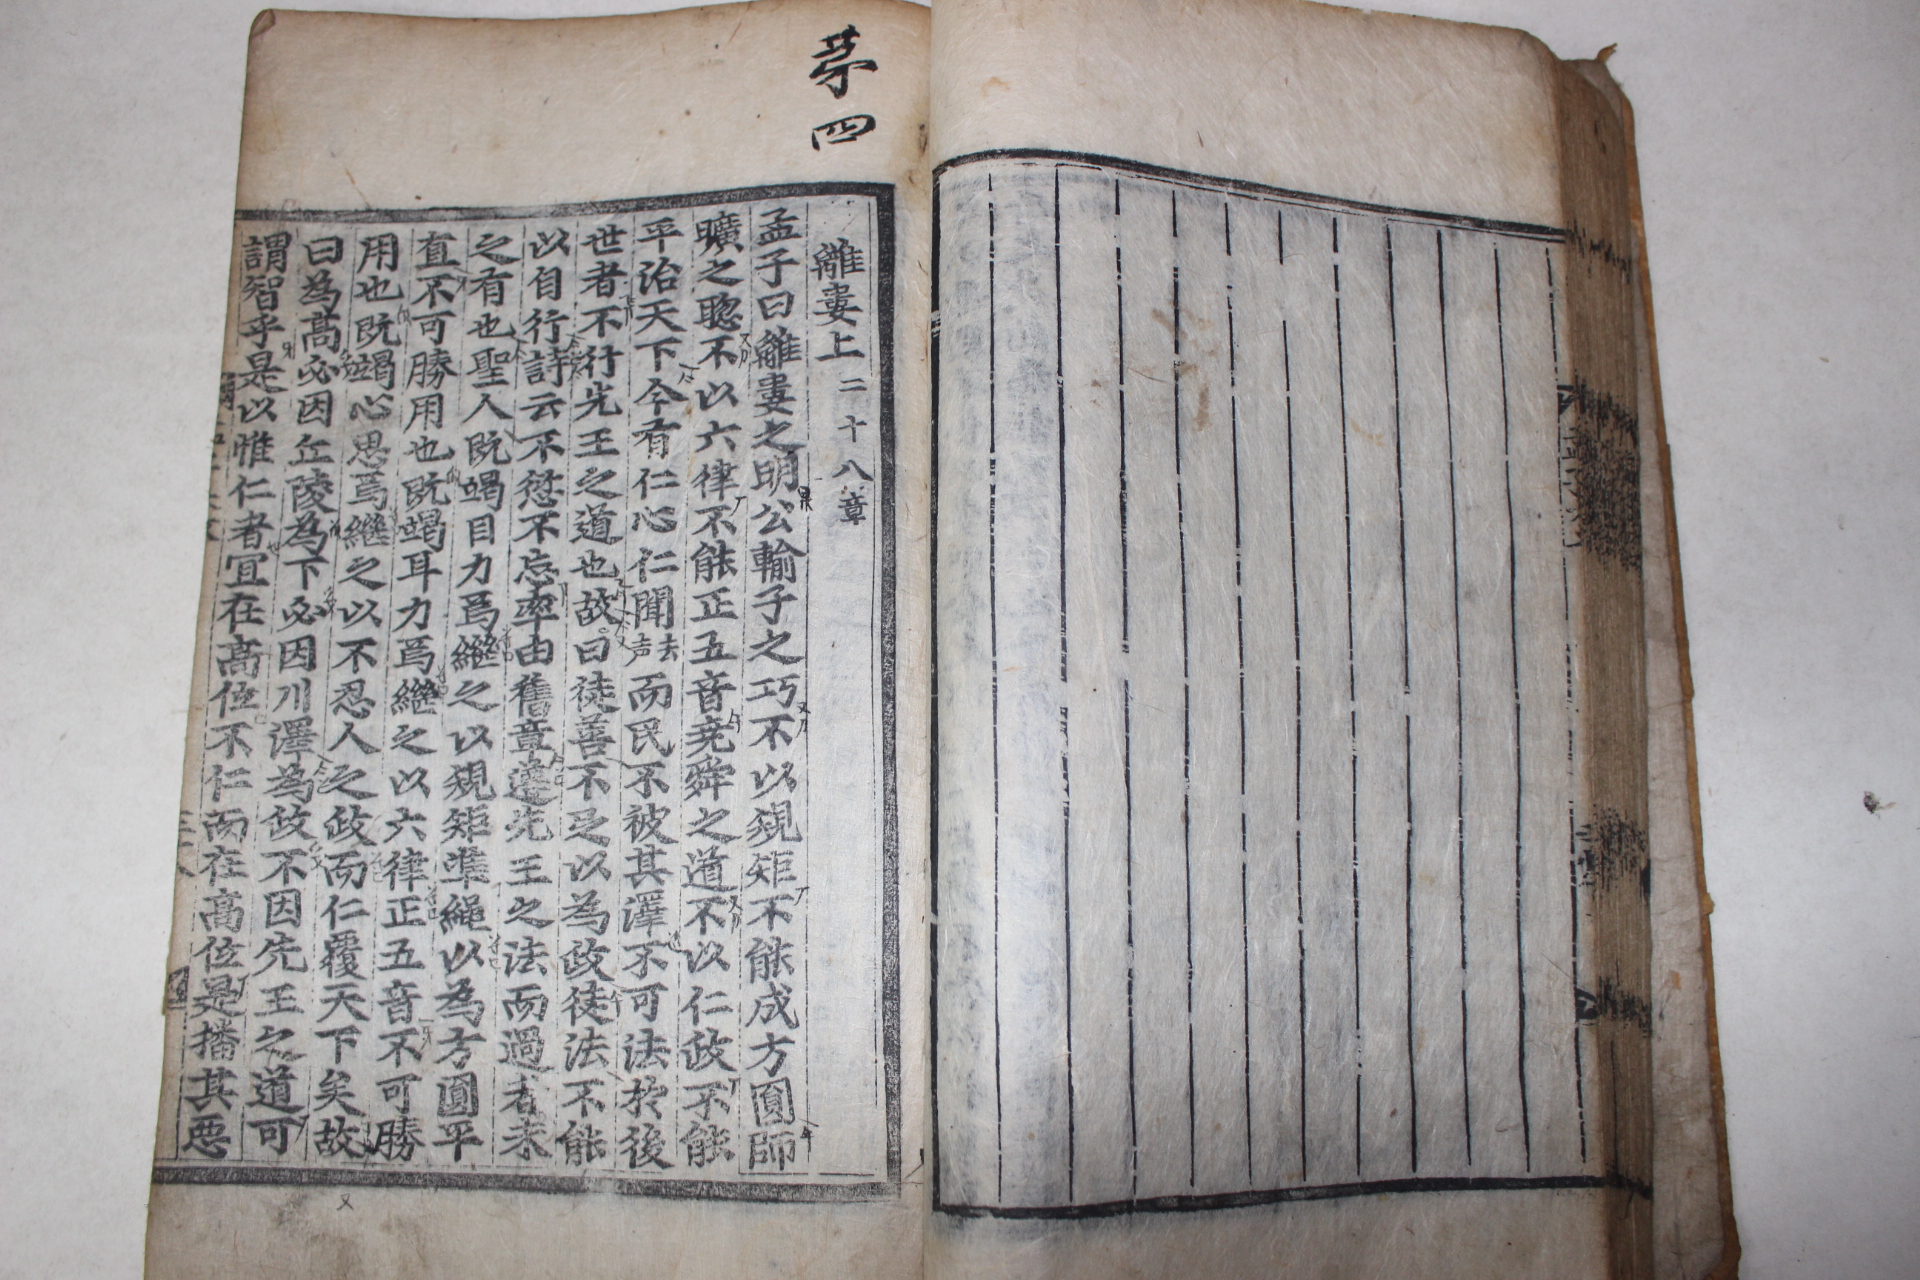 苐四
離婁上 二十八章
孟子曰離婁之明公輸子之巧不以規矩不能成方圓師
曠之聦不以六律不能正五音尭舜之道不以仁政不能
平治天下今有仁心仁聞去声而民不被其澤不可法於後
世者不行先王之道也故曰徒善不足以為政徒法不能
以自行詩云不愆不忘率由舊章遵先王之法而過者未
之有也聖人既竭目力焉繼之以規矩準繩以為方圓平
直不可勝用也既竭耳力焉繼之以六律正五音不可勝
用也既竭心思焉繼之以不忍人之政而仁覆天下矣故
曰為髙必因丘陵為下必因川澤為政不因先王之道可
謂智乎是以惟仁者宜在髙位不仁而在髙位是播其惡